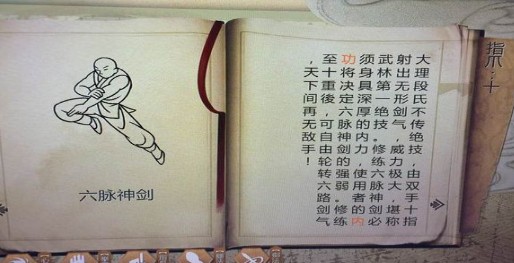 六脉神剑
大理段氏不传绝技，由双手十指
射出无形剑气，威力极大，堪称
武林第一绝技。修练六脉神剑必
须身具深厚的内力，使用者的内
功将决定六脉神剑的强弱。修练
至十重後，可自由轮转六路剑气
，天下間再无敌手！